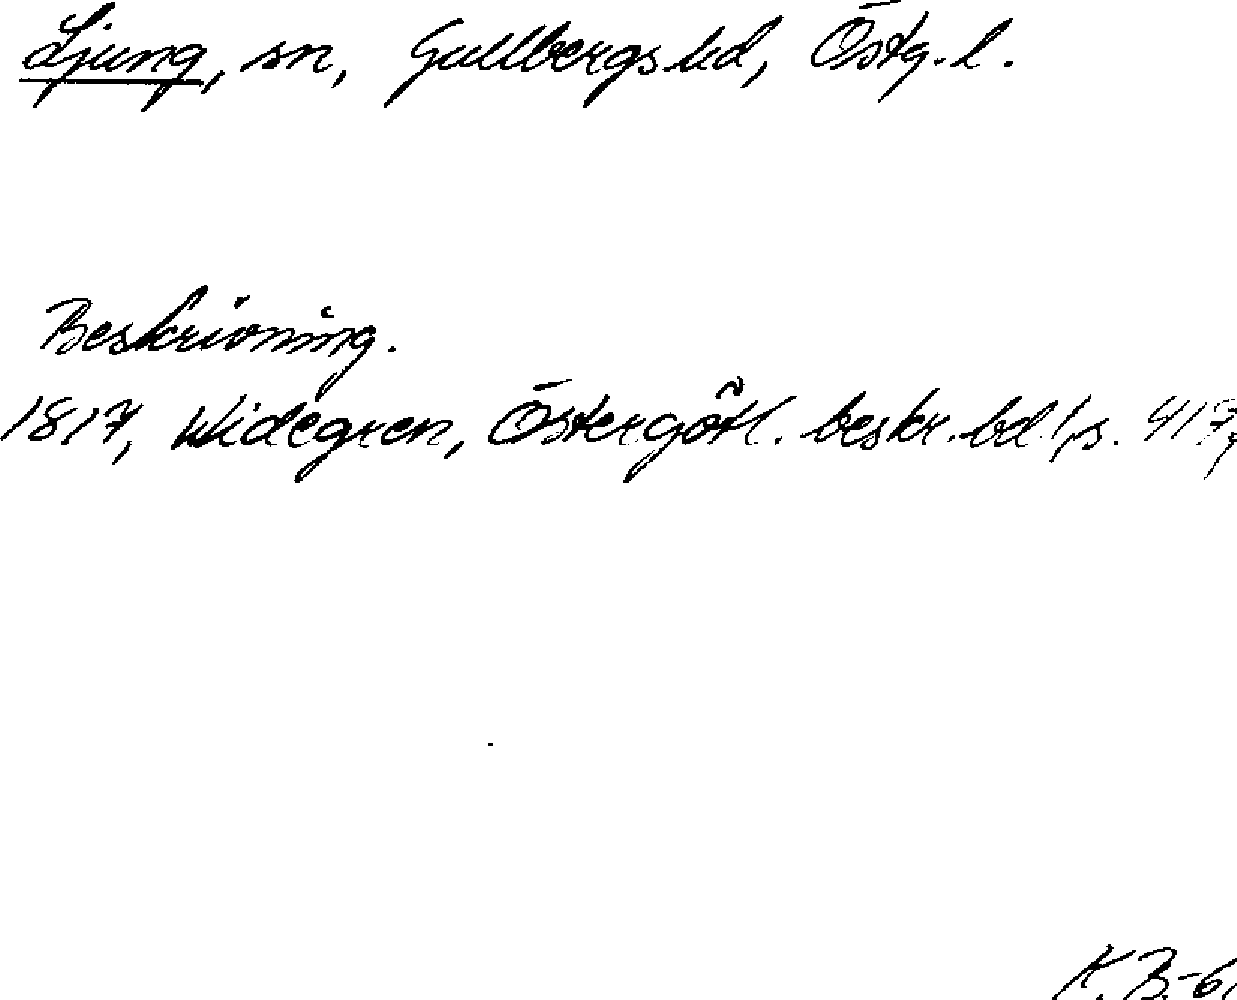 Ljung, sn, Gullbergs hd, Östg. l.
Beskrivning.
1817, Widegren, Östergötl. beskr. bd 1, s. 417,
K. B.-61